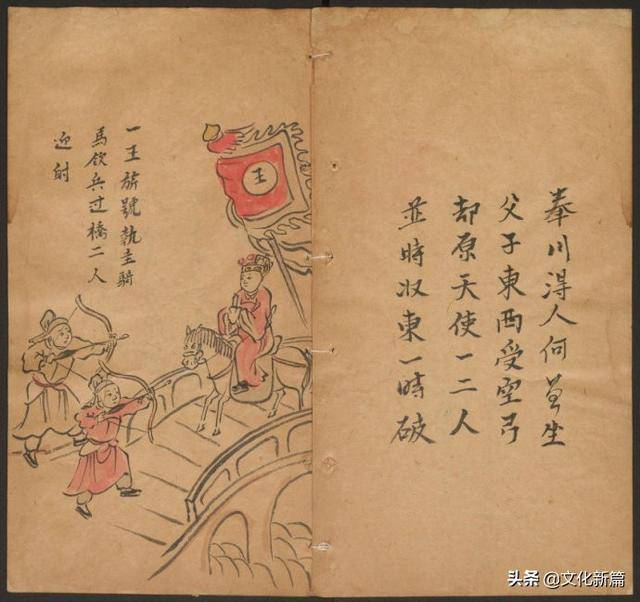 川得人何坐
父子東西受空弓
却原天使一二人
並時収東一時破
一王旂號執圭騎
馬欽兵过橋二人
迎射
王
头条 @文化新篇